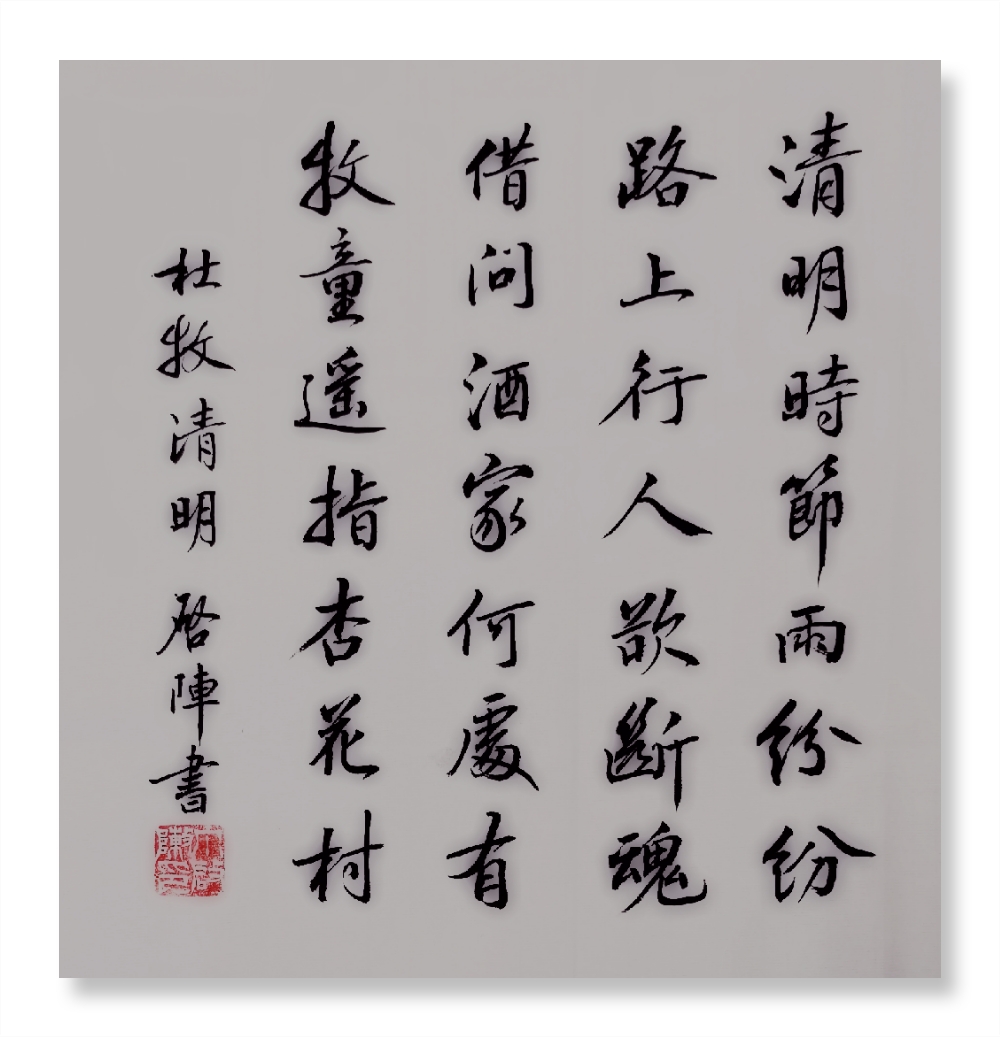 清明時節雨紛紛
路上行人欲斷魂
借問酒家何處有
牧童遥指杏花村
杜牧清明 啓陣書